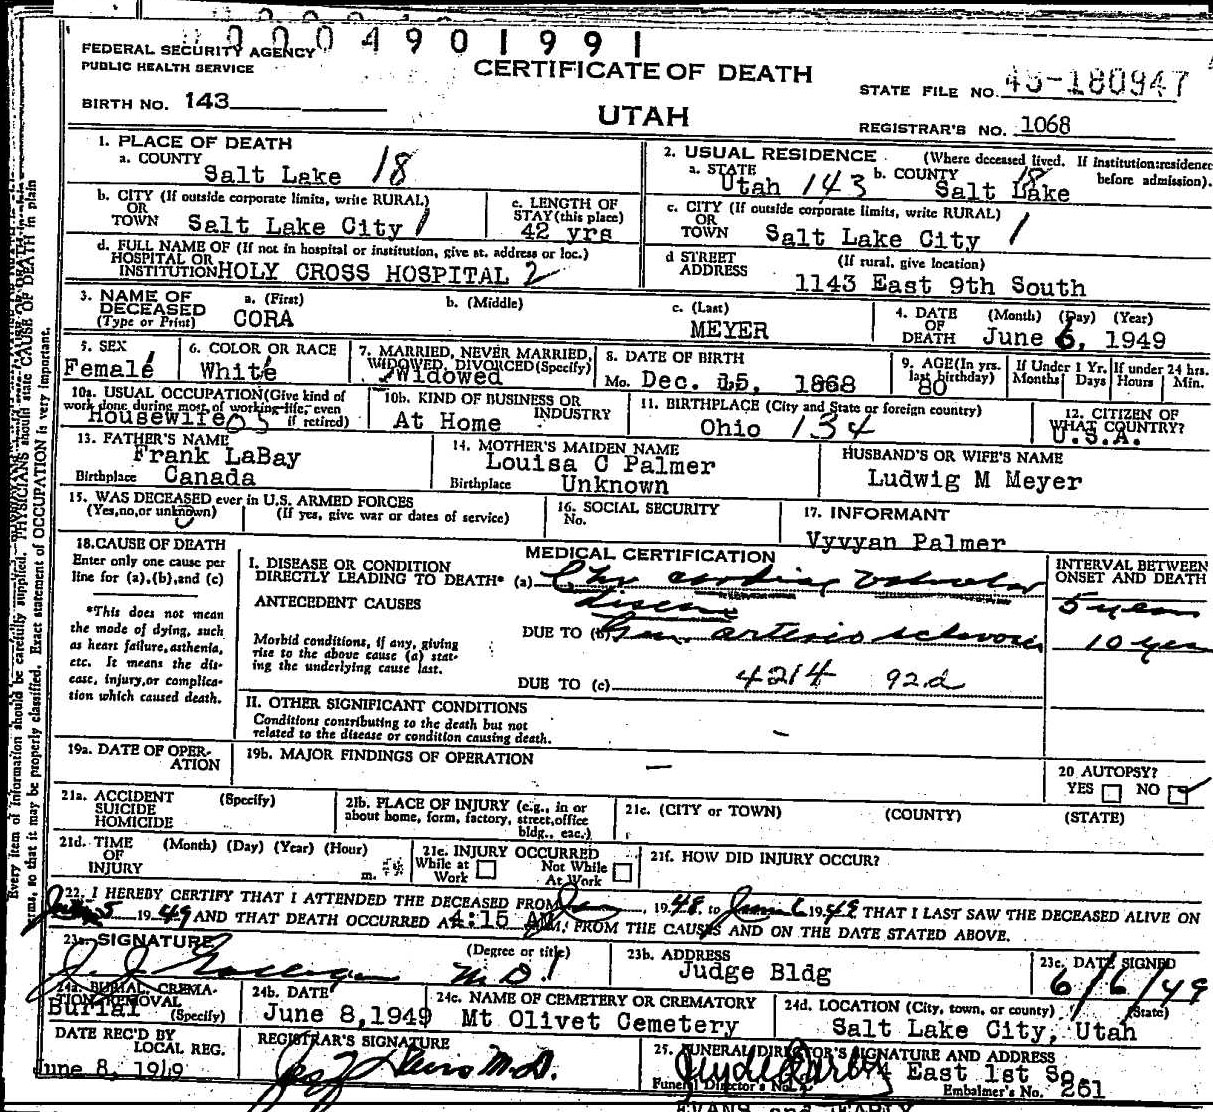 0004901991
FEDERAL SECURITY AGENCY
PUBLIC HEALTH SERVICE
CERTIFICATE OF DEATH
STATE FILE NO. 45-180947
BIRTH NO. 143
UTAH
REGISTRAR'S NO. 1068
1. PLACE OF DEATH
a. COUNTY
Salt Lake 18
2. USUAL RESIDENCE (Where deceased lived. If institution: residence before admission).
a. STATE b. COUNTY 18
Utah 143 Salt Lake
b. CITY (If outside corporate limits, write RURAL)
OR
TOWN Salt Lake City 1
c. LENGTH OF
STAY (this place)
42 yrs
c. CITY (If outside corporate limits, write RURAL)
OR
TOWN Salt Lake City 1
d. FULL NAME OF (If not in hospital or institution, give st. address or loc.)
HOSPITAL OR
INSTITUTION HOLY CROSS HOSPITAL 2
d STREET (If rural, give location)
ADDRESS
1143 East 9th South
3. NAME OF a. (First) b. (Middle) c. (Last)
DECEASED
(Type or Print) CORA MEYER
4. DATE (Month) (Day) (Year)
OF
DEATH June 6, 1949
5. SEX
Female 1
6. COLOR OR RACE
White 1
7. MARRIED, NEVER MARRIED,
WIDOWED, DIVORCED (Specify)
Widowed
8. DATE OF BIRTH
Mo. Dec. 15, 1868
9. AGE (In yrs.
last birthday)
80
If Under 1 Yr.
Months Days
If under 24 hrs.
Hours Min.
10a. USUAL OCCUPATION (Give kind of
work done during most of working life, even
if retired)
Housewife
10b. KIND OF BUSINESS OR
INDUSTRY
At Home
11. BIRTHPLACE (City and State or foreign country)
Ohio 134
12. CITIZEN OF
WHAT COUNTRY?
U.S.A.
13. FATHER'S NAME
Frank LaBay
Birthplace Canada
14. MOTHER'S MAIDEN NAME
Louisa C Palmer
Birthplace Unknown
HUSBAND'S OR WIFE'S NAME
Ludwig M Meyer
15. WAS DECEASED ever in U.S. ARMED FORCES
(Yes, no, or unknown) (If yes, give war or dates of service)
16. SOCIAL SECURITY
No.
17. INFORMANT
Vyvyan Palmer
18. CAUSE OF DEATH
Enter only one cause per
line for (a), (b), and (c)
*This does not mean
the mode of dying, such
as heart failure, asthenia,
etc. It means the dis-
ease, injury, or complica-
tion which caused death.
MEDICAL CERTIFICATION
I. DISEASE OR CONDITION
DIRECTLY LEADING TO DEATH* (a) disease
ANTECEDENT CAUSES
Morbid conditions, if any, giving
rise to the above cause (a) stat-
ing the underlying cause last.
DUE TO (b) Gen. arterio sclerosis
DUE TO (c) 4214 92d
INTERVAL BETWEEN
ONSET AND DEATH
5 years
10 years
II. OTHER SIGNIFICANT CONDITIONS
Conditions contributing to the death but not
related to the disease or condition causing death.
19a. DATE OF OPER-
ATION
19b. MAJOR FINDINGS OF OPERATION
20 AUTOPSY?
YES NO
21a. ACCIDENT (Specify)
SUICIDE
HOMICIDE
21b. PLACE OF INJURY (e.g., in or
about home, form, factory, street, office
bldg., eac.)
21c. (CITY or TOWN) (COUNTY) (STATE)
21d. TIME (Month) (Day) (Year) (Hour)
OF
INJURY m.
21e. INJURY OCCURRED
While at Work Not While At Work
21f. HOW DID INJURY OCCUR?
22. I HEREBY CERTIFY THAT I ATTENDED THE DECEASED FROM Jan, 1948, to June 6 1949 THAT I LAST SAW THE DECEASED ALIVE ON
June 5 1949 AND THAT DEATH OCCURRED AT 4:15 AM, FROM THE CAUSES AND ON THE DATE STATED ABOVE.
23a. SIGNATURE (Degree or title)
M.D.
23b. ADDRESS
Judge Bldg
23c. DATE SIGNED
6/6/49
24a. BURIAL, CREMA-
TION, REMOVAL
(Specify)
Burial
24b. DATE
June 8, 1949
24c. NAME OF CEMETERY OR CREMATORY
Mt Olivet Cemetery
24d. LOCATION (City, town, or county) (State)
Salt Lake City, Utah
DATE REC'D BY
LOCAL REG.
June 8, 1949
REGISTRAR'S SIGNATURE
M.D.
25. FUNERAL DIRECTOR'S SIGNATURE AND ADDRESS
East 1st So.
Funeral Director's No. Embalmer's No. 261
EVANS and EARLY
Every item of information should be carefully supplied. PHYSICIANS should state CAUSE OF DEATH in plain
terms, so that it may be properly classified. Exact statement of OCCUPATION is very important.